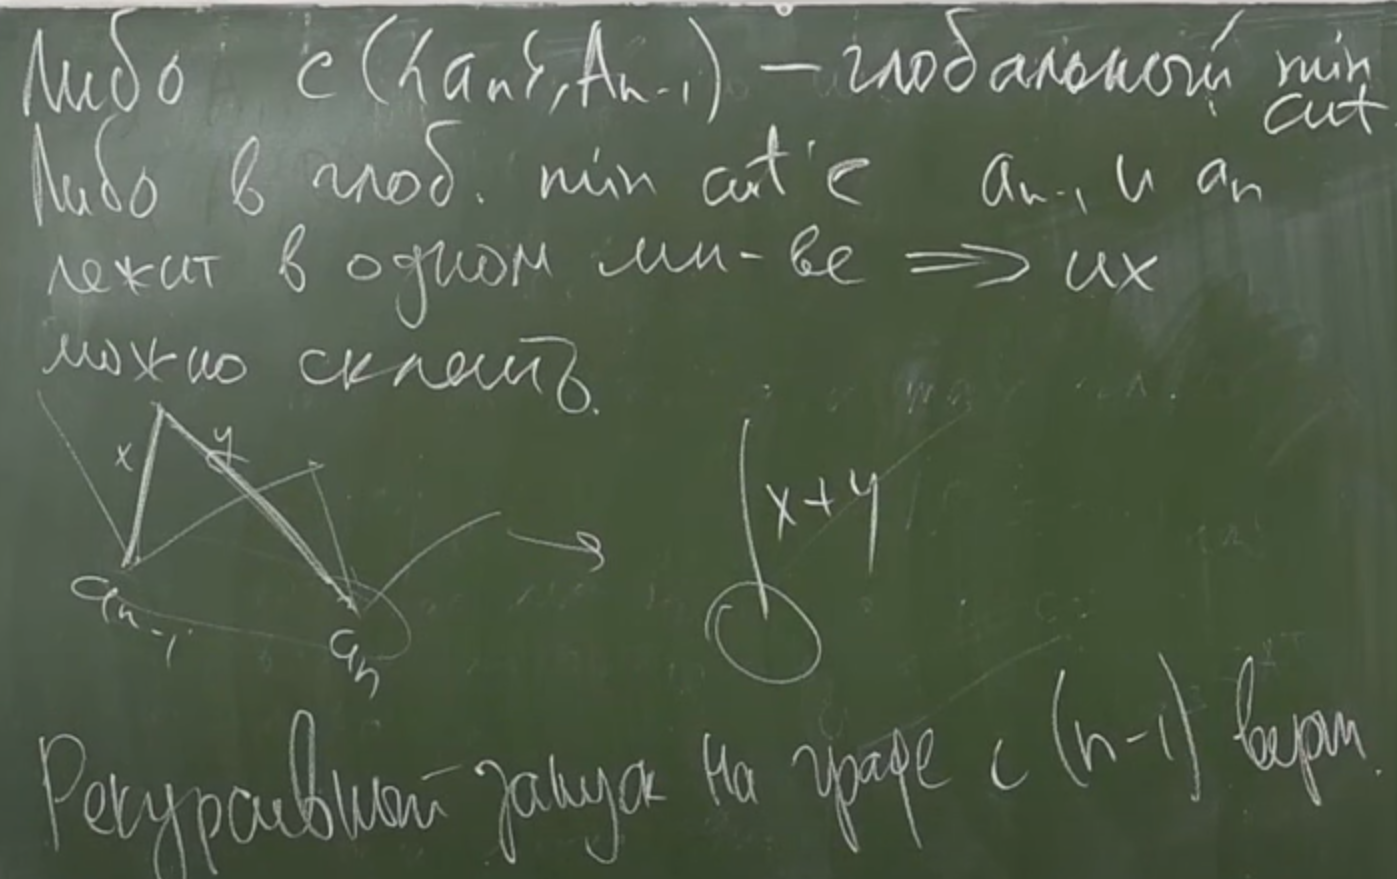 Либо c({aₙ}, Aₙ₋₁) – глобальный min cut
Либо в глоб. min cut'е aₙ₋₁ и aₙ
лежит в одном мн-ве ⟹ их
можно склеить.
x y
x+y
aₙ₋₁ aₙ
Рекурсивный запуск на графе с (n-1) верш.